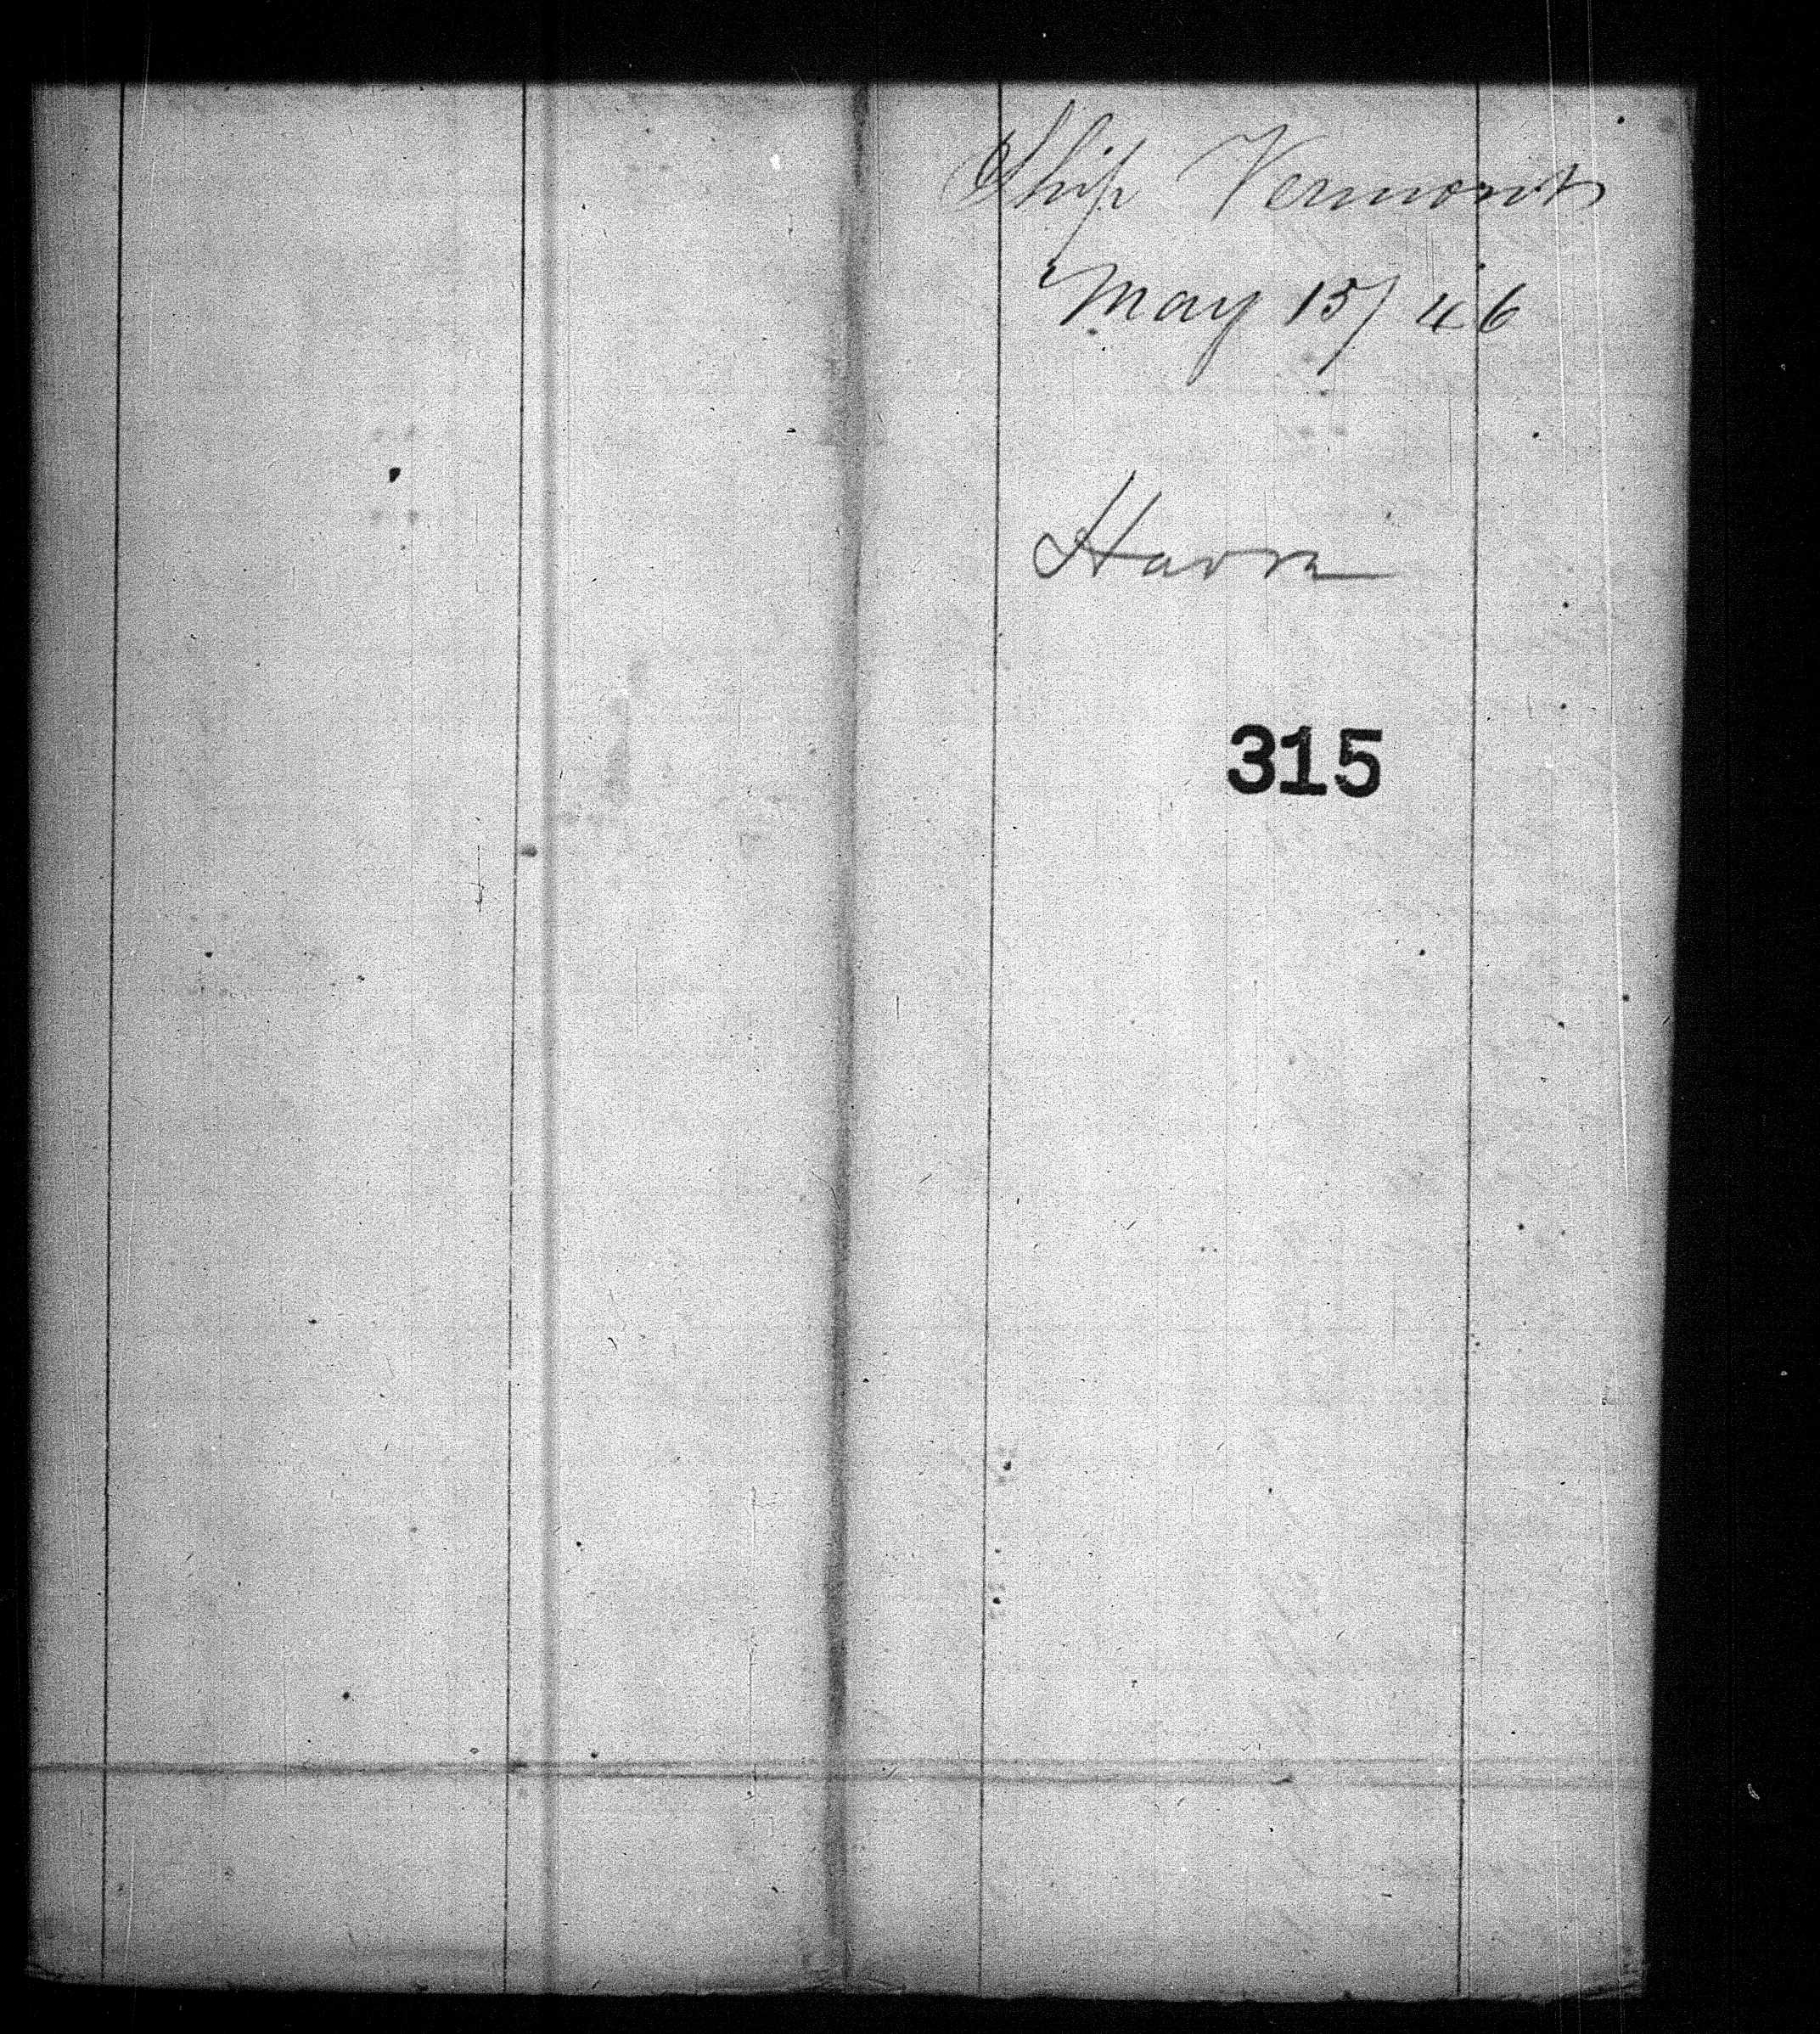 Ship Vermont
May 15/46
Havre
315